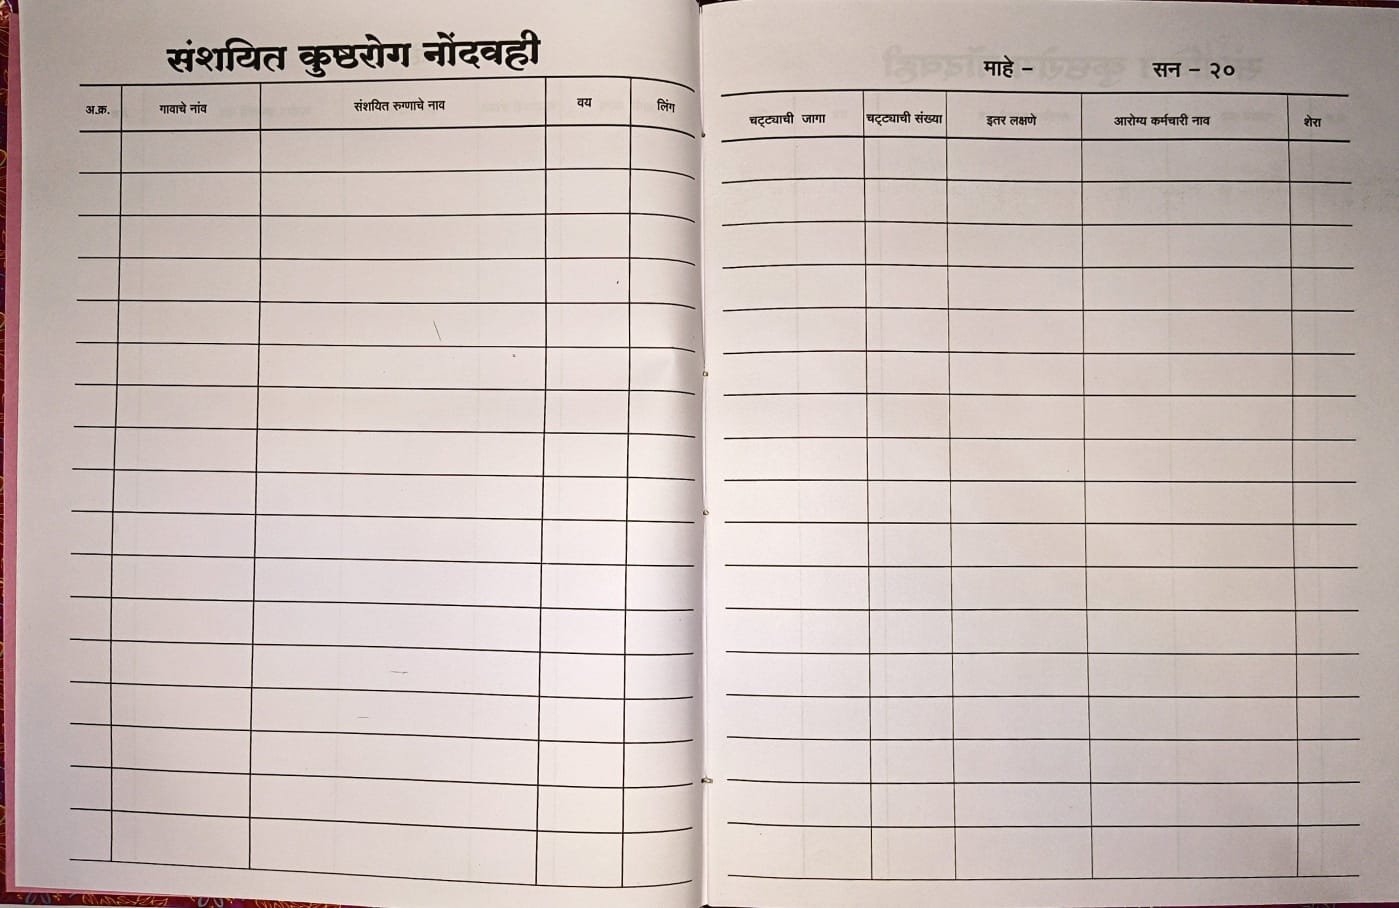 संशयित कुष्ठरोग नोंदवही
अ.क्र. गावाचे नांव संशयित रुग्णाचे नाव वय लिंग
माहे – सन – २०
चट्ट्याची जागा चट्ट्याची संख्या इतर लक्षणे आरोग्य कर्मचारी नाव शेरा